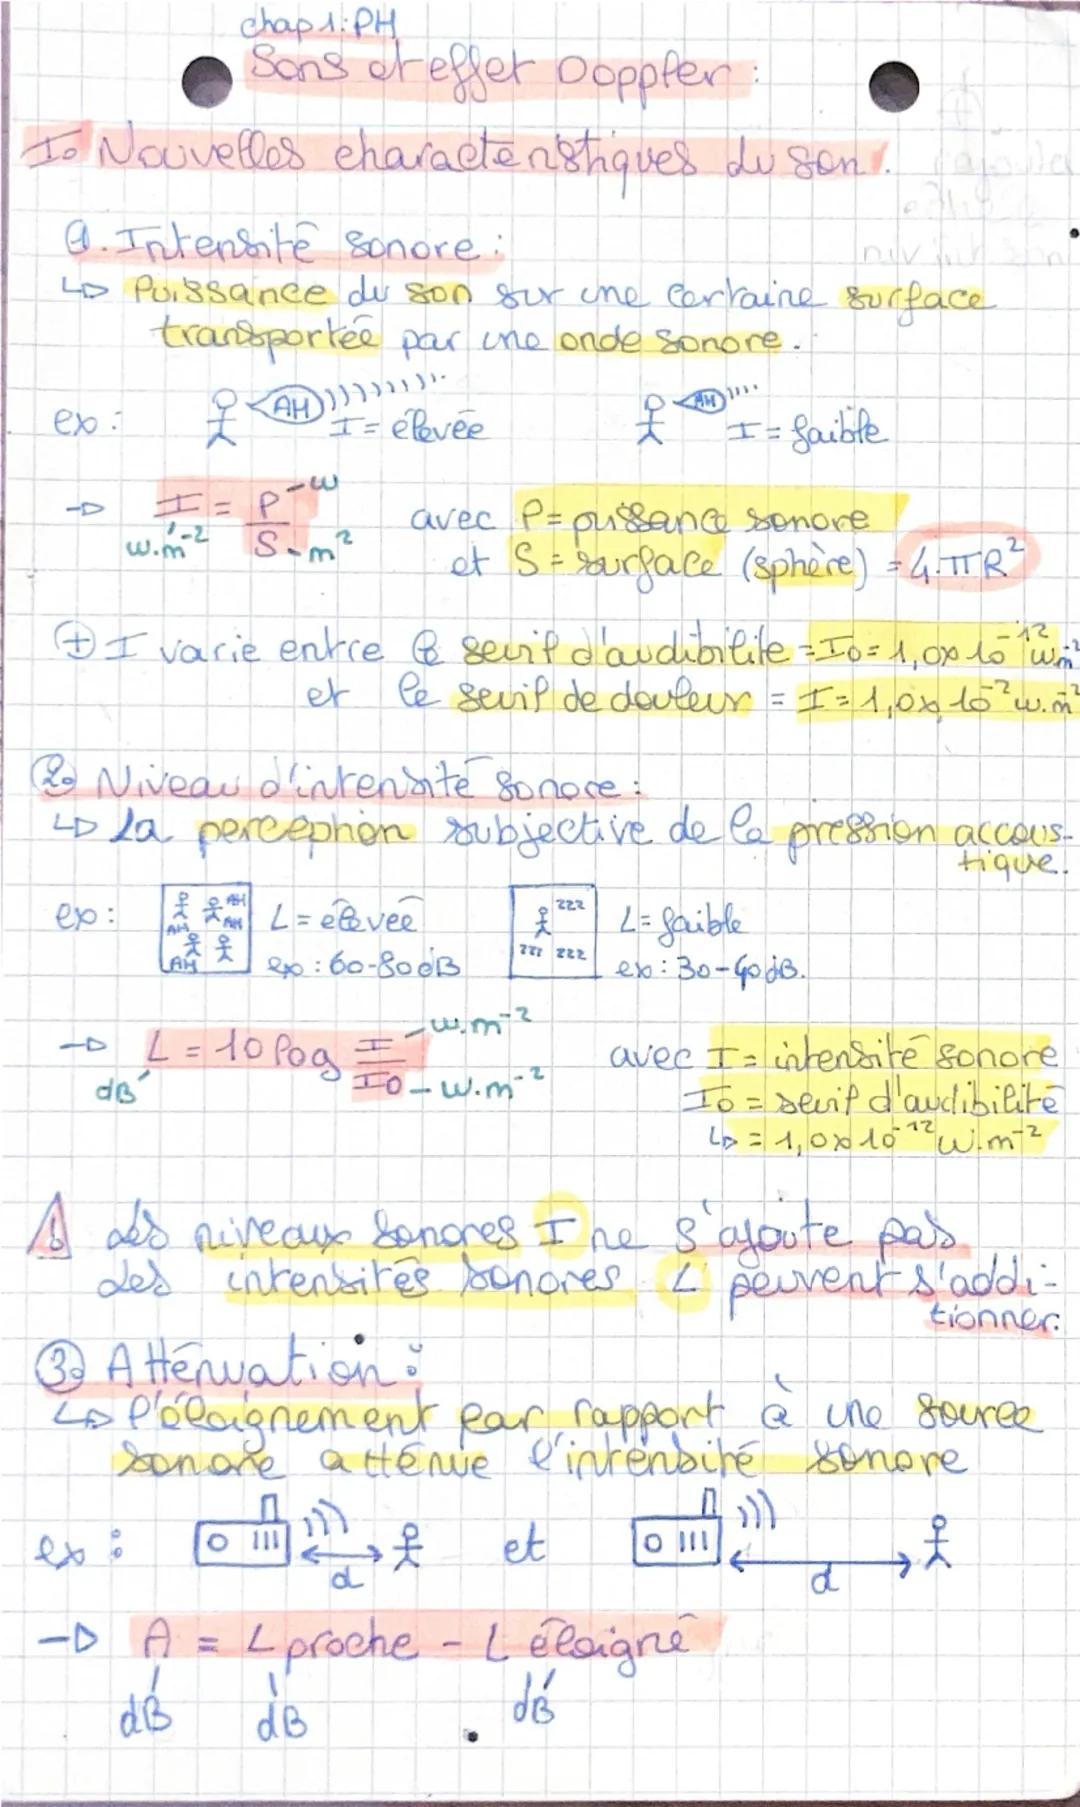 chap 1: PH
Sons et effet Doppler :
I. Nouvelles charactéristiques du son.
1. Intensité sonore :
↳ Puissance du son sur une certaine surface
transportée par une onde sonore.
ex : AH ))))))))) I = élevée AH )))) I = faible
→ I = P/S W W.m⁻² m² avec P = puissance sonore
et S = surface (sphère) = 4.πR²
⊕ I varie entre le seuil d'audibilité = I0 = 1,0x10⁻¹² W.m⁻²
et le seuil de douleur = I = 1,0x10⁻² W.m⁻²
2. Niveau d'intensité sonore :
↳ la perception subjective de la pression accous-
tique.
ex : AH AH AH AH AH L = élevée zzz zzz zzz L = faible
ex : 60-80dB ex : 30-40dB.
→ L = 10 log I/I0 dB W.m⁻² W.m⁻² avec I = intensité sonore
I0 = seuil d'audibilité
↳ = 1,0x10⁻¹² W.m⁻²
⚠ des niveaux sonores I ne s'ajoute pas
des intensités sonores L peuvent s'addi-
tionner.
3. Atténuation :
↳ l'éloignement par rapport à une source
sonore atténue l'intensité sonore
ex : d et d
→ A = L proche - L éloigné
dB dB dB